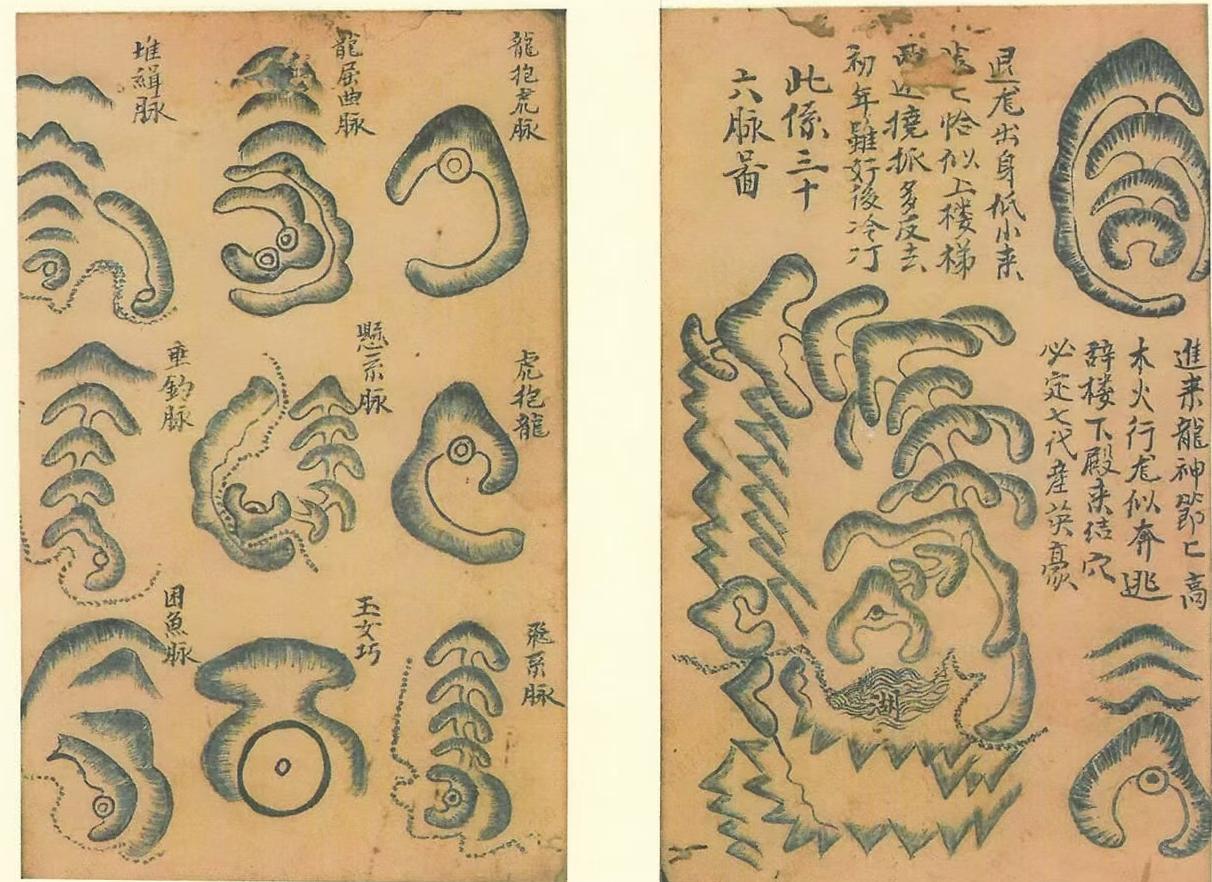 進来龍神節已高
木火行龙似奔逃
辞楼下殿来结穴
必定七代産英豪
退龙出身低小来
恰似上楼梯
撓抓多反去
初年雖好後冷汀
此係三十
六脉啚
湖
龍抱虎脉
龍屈曲脉
堆緝脉
虎抱龍
懸系脉
垂釣脉
飛系脉
玉女巧
困魚脉